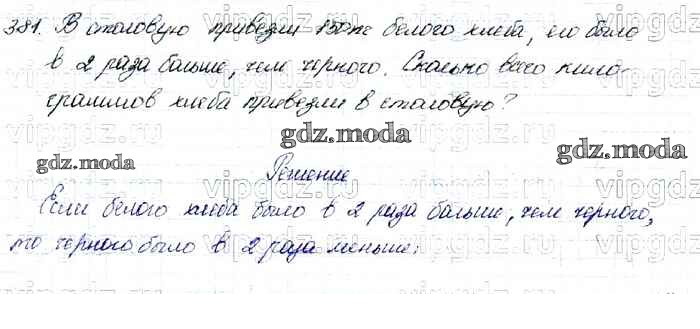 381. В столовую привезли 150кг белого хлеба, его было
в 2 раза больше, чем черного. Сколько всего кило-
граммов хлеба привезли в столовую?
gdz.moda
gdz.moda
gdz.moda
Решение
Если белого хлеба было в 2 раза больше, чем черного,
то черного было в 2 раза меньше: